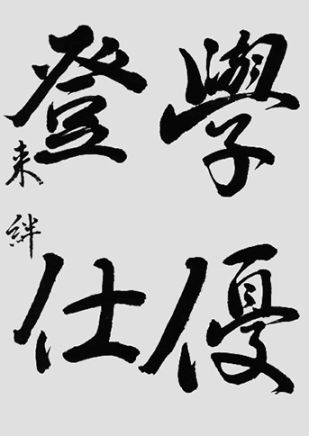 學優
登仕
来絆